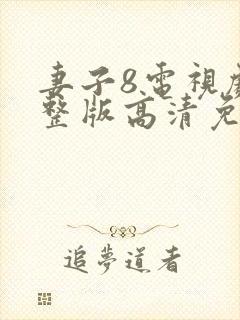 妻子8電視
整版高清免
追夢道者